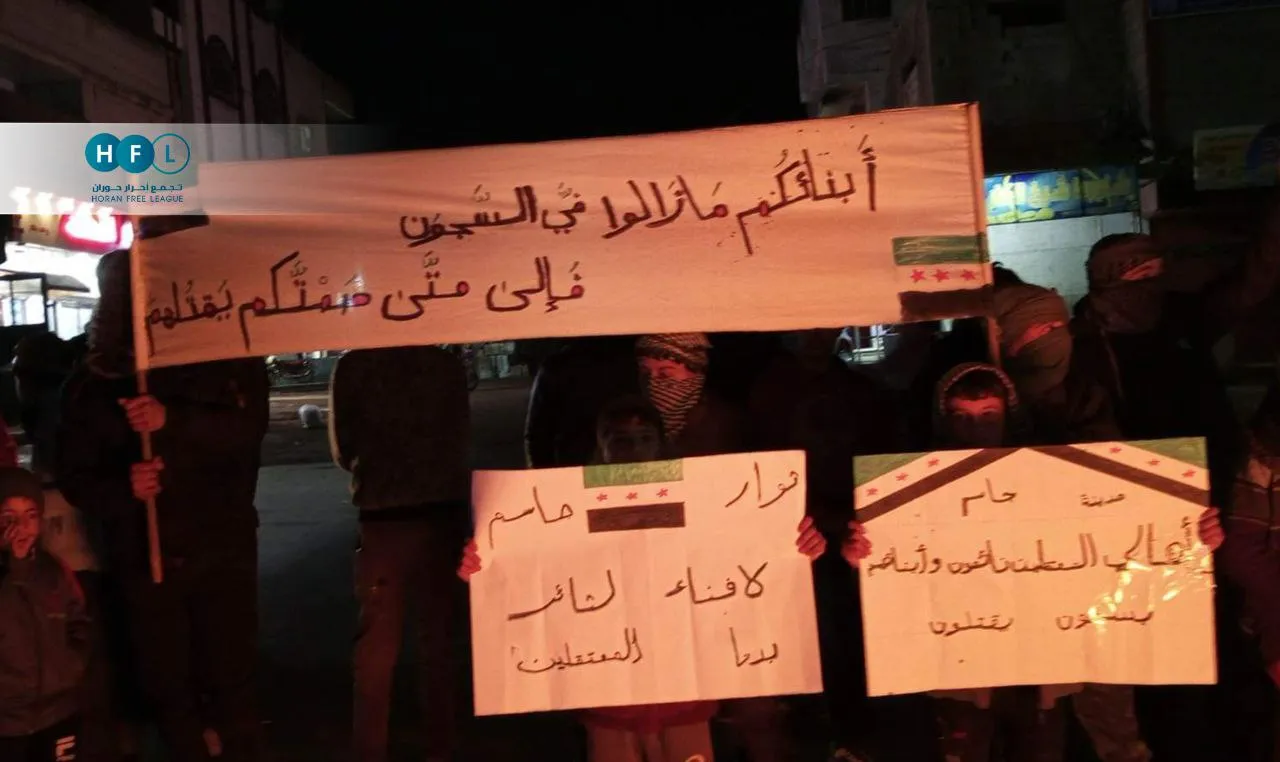 HFL
تجمع أحرار حوران
HORAN FREE LEAGUE
أبنَائكُم مَازَالوا فيّ السَّجون
فإلى متَّى صَمْتَكم يَقتلهم
ثوار جاسم
لا فناء لثائر
بدنا المعتقلين
مدينة جاسم
أهالي المعتقلين نائمون وأبنائهم
يقتلون